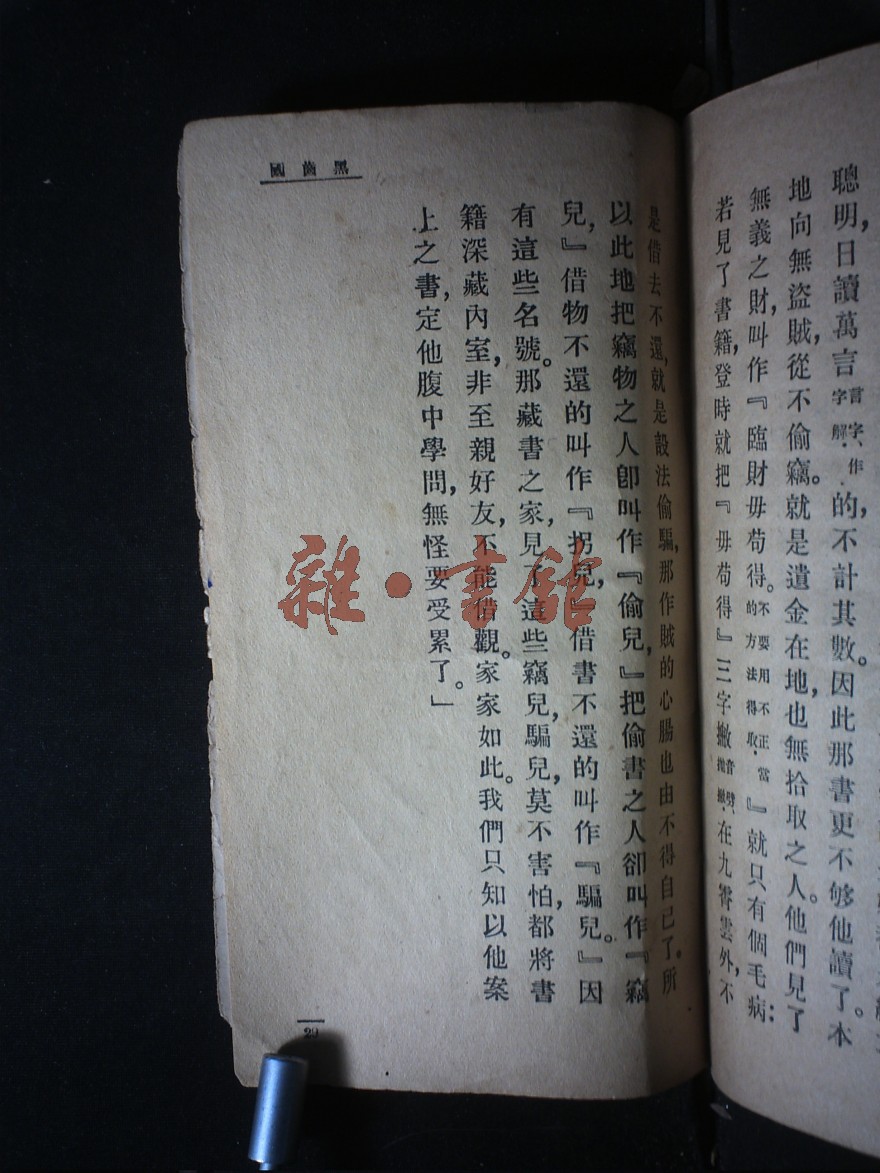 聰明，日讀萬言言字，作字解。的，不計其數。因此那書更不够他讀了。本
地向無盜賊，從不偷竊。就是遺金在地，也無拾取之人。他們見了
無義之財，叫作『臨財毋苟得。不要用不正當的方法得取。』就只有個毛病：
若見了書籍，登時就把『毋苟得』三字撇在九霄雲外，不
是借去不還，就是設法偷騙，那作賊的心腸也由不得自己了。所
以此地把竊物之人卽叫作『偷兒，』把偷書之人卻叫作『竊
兒，』借物不還的叫作『拐兒，』借書不還的叫作『騙兒。』因
有這些名號。那藏書之家，見了這些竊兒，騙兒，莫不害怕，都將書
籍深藏內室，非至親好友，不能借觀。家家如此。我們只知以他案
上之書，定他腹中學問，無怪要受累了。」
黑齒國
29
雜·書館